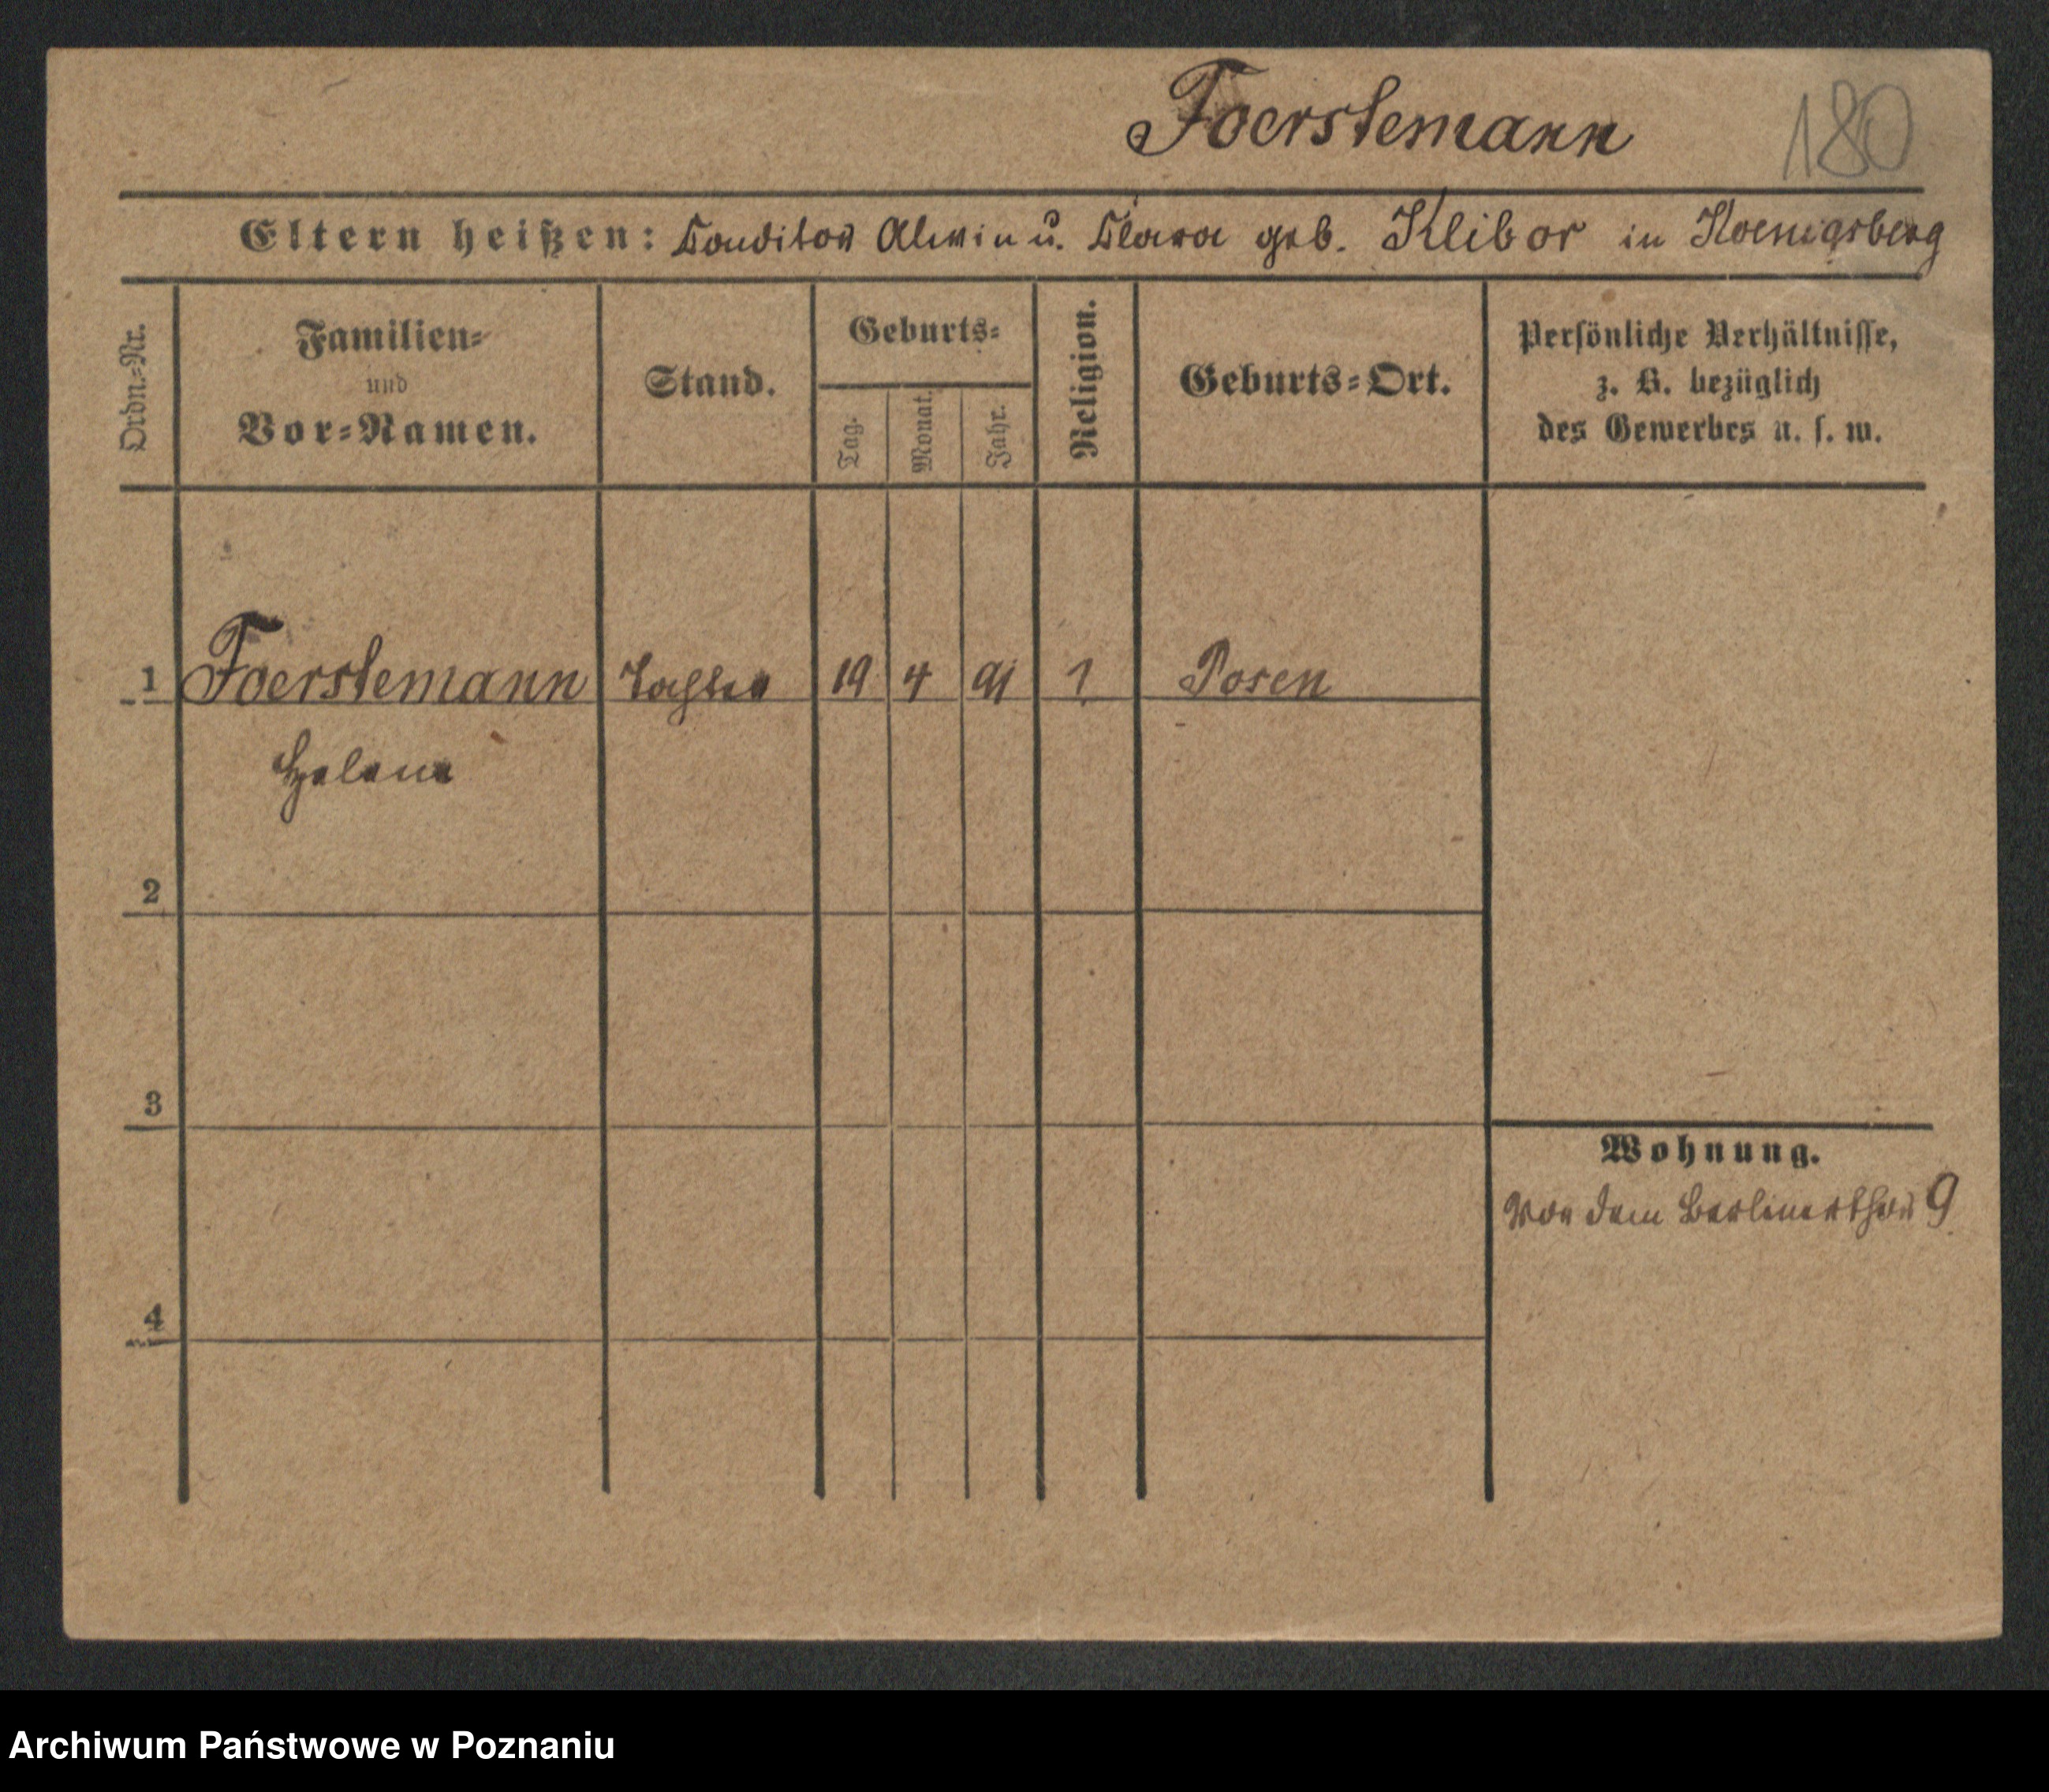 Foerstemann
180
Eltern heißen: Conditor Alwin u. Clara geb. Klibor in Koenigsberg
Ordn.-Nr.
Familien-
und
Vor-Namen.
Stand.
Geburts-
Tag.
Monat.
Jahr.
Religion.
Geburts-Ort.
Persönliche Verhältnisse,
z. B. bezüglich
des Gewerbes u. s. w.
1 Foerstemann Tochter 19 4 91 1 Posen
Helene
2
3
Wohnung.
Vor dem Berlinerthor 9
4
Archiwum Państwowe w Poznaniu